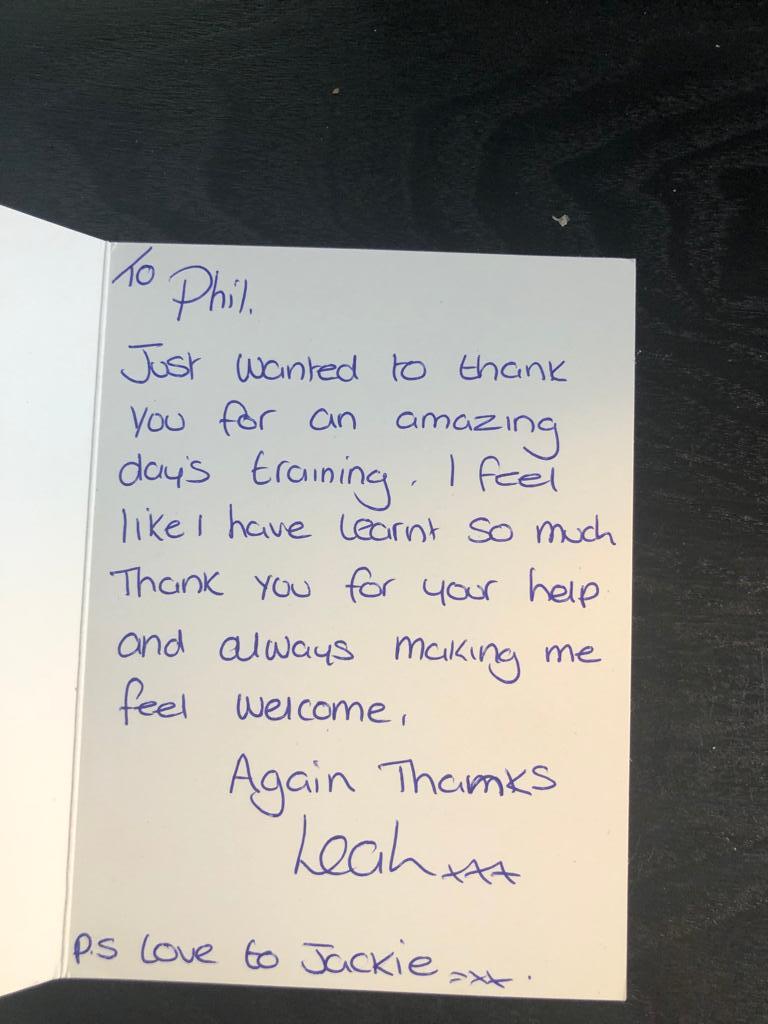 To Phil.
Just wanted to thank
you for an amazing
day's training. I feel
like I have learnt so much
Thank you for your help
and always making me
feel welcome.
Again Thanks
Leah xxx
P.S Love to Jackie xxx.